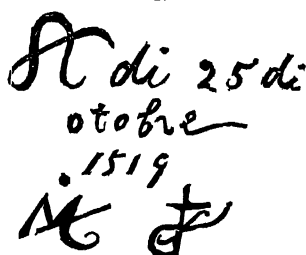 A di 25 di
otobre
1519